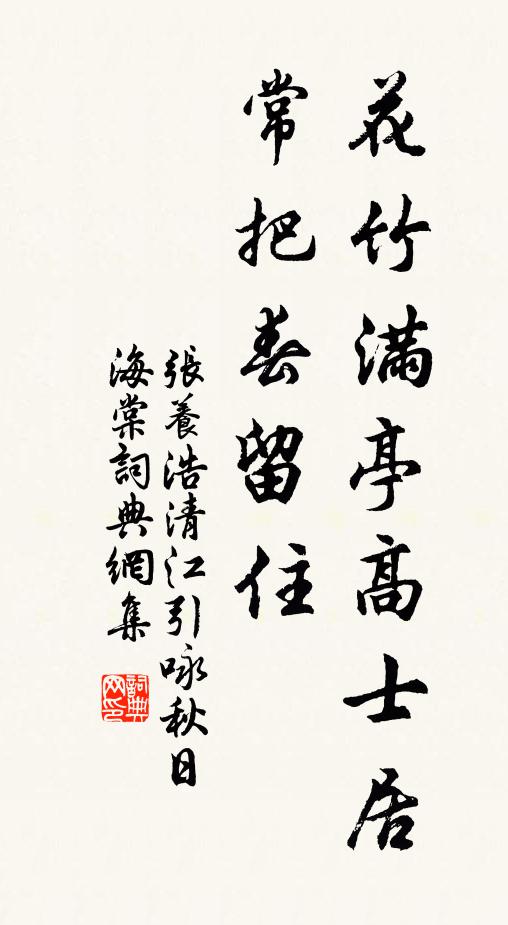 花竹滿亭高士居
常把春留住
張養浩清江引咏秋日
海棠詞典網集
詞典
网印